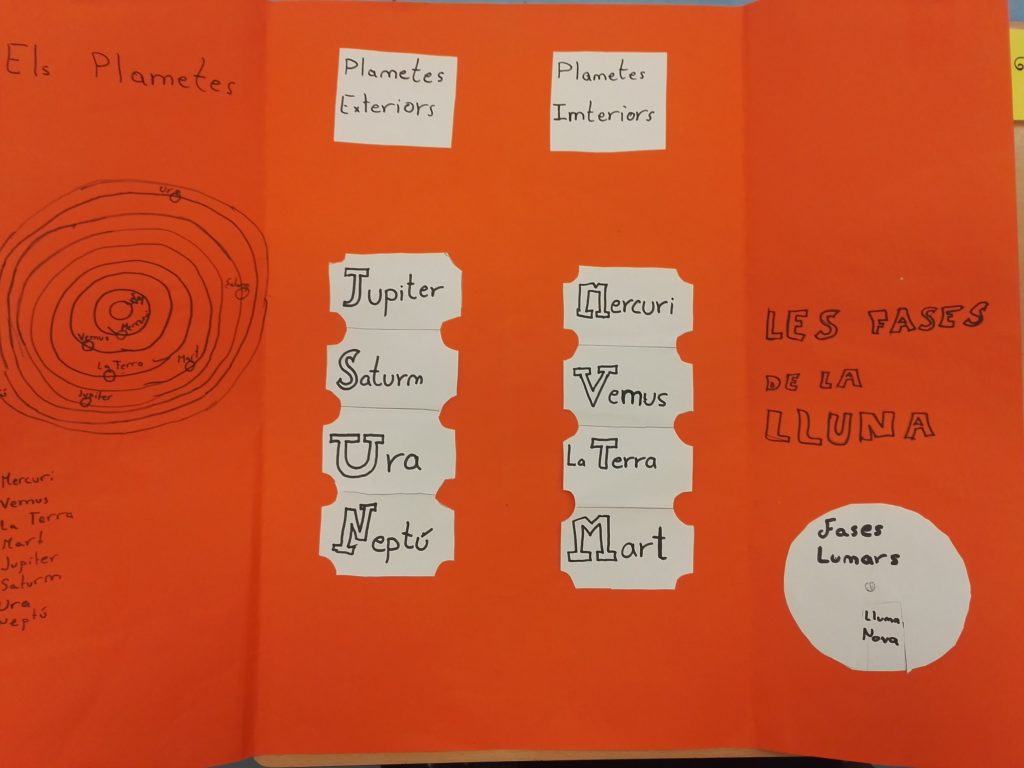 Els Plametes
Ura
Saturm
Sol
Mercuri
Vemus
La Terra
Mart
Jupiter
Mercuri
Vemus
La Terra
Mart
Jupiter
Saturm
Ura
Neptú
Plametes
Exteriors
Jupiter
Saturm
Ura
Neptú
Plametes
Imteriors
Mercuri
Vemus
La Terra
Mart
LES FASES
DE LA
LLUNA
Fases
Lumars
Lluma
Nova